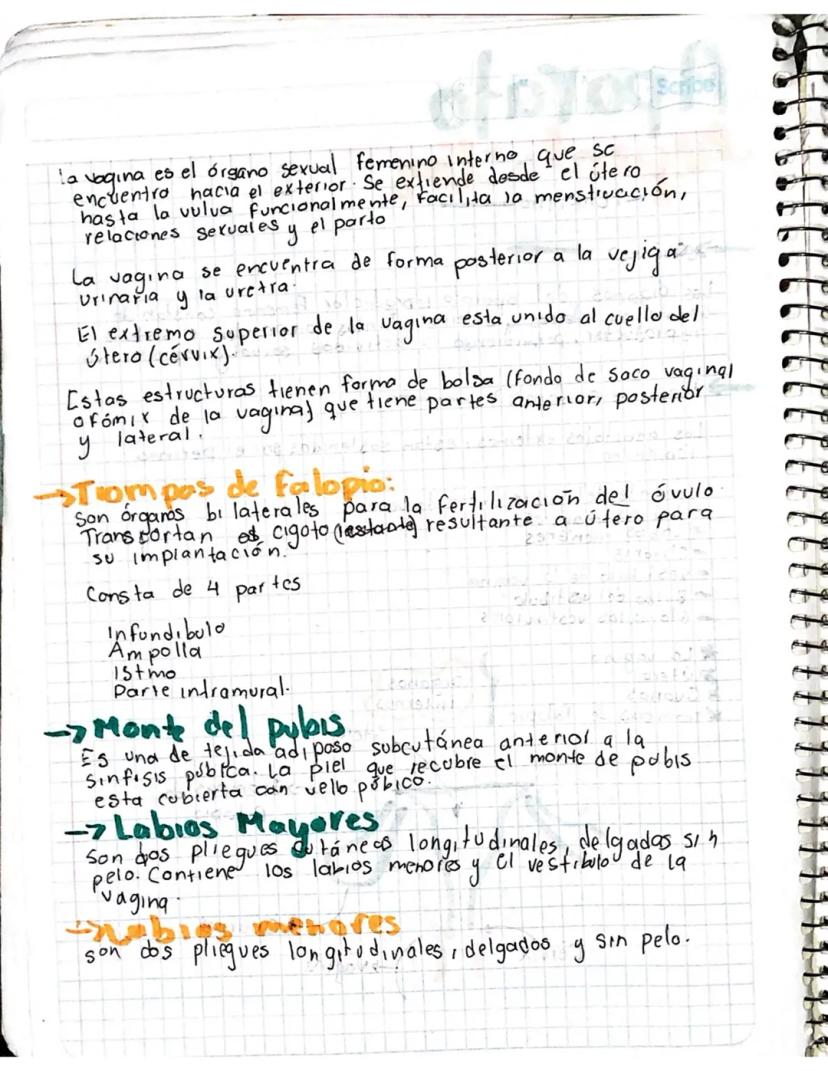 la vagina es el órgano sexual femenino interno que se
encuentro hacia el exterior. Se extiende desde el útero
hasta la vulva funcionalmente, facilita la menstruación,
relaciones sexuales y el parto
La vagina se encuentra de forma posterior a la vejiga
urinaria y la uretra.
El extremo superior de la vagina esta unido al cuello del
útero (cérvix).
Estas estructuras tienen forma de bolsa (fondo de saco vaginal
o fómix de la vagina) que tiene partes anterior, posterior
y lateral.
→Trompas de falopio:
Son órganos bilaterales para la fertilización del óvulo.
Transportan el cigoto resultante a útero para
su implantación.
Consta de 4 partes
Infundibulo
Ampolla
Istmo
Parte intramural.
→Monte del pubis
Es una de tejida adiposo subcutánea anterior a la
sinfisis púbica. La piel que recubre el monte de pubis
esta cubierta con vello púbico.
→Labios Mayores
Son dos pliegues cutáneos longitudinales, delgados sin
pelo. Contiene los labios menores y el vestibulo de la
vagina.
→Labios menores
son dos pliegues longitudinales, delgados y sin pelo.
Scribe